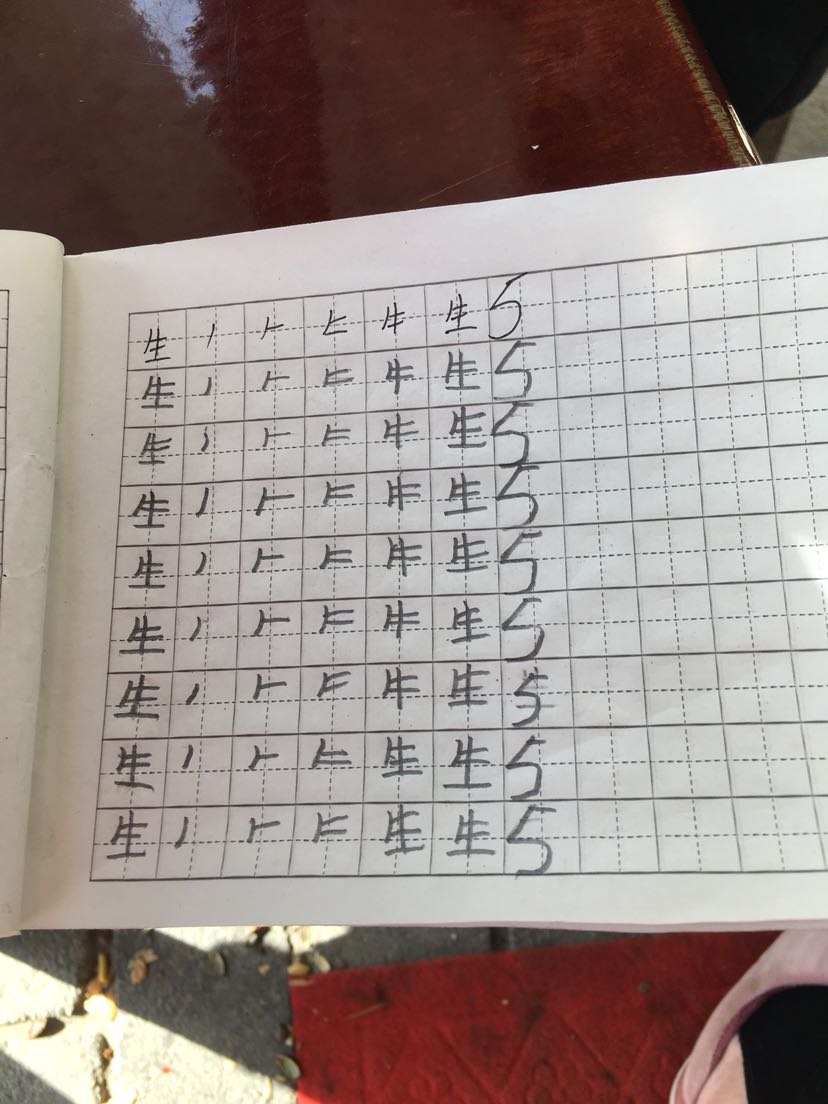 生 丿 𠂉 ⺧ 牛 生 5
生 丿 𠂉 ⺧ 牛 生 5
生 丿 𠂉 ⺧ 牛 生 5
生 丿 𠂉 ⺧ 牛 生 5
生 丿 𠂉 ⺧ 牛 生 5
生 丿 𠂉 ⺧ 牛 生 5
生 丿 𠂉 ⺧ 牛 生 5
生 丿 𠂉 ⺧ 生 生 5
生 丿 𠂉 ⺧ 生 生 5